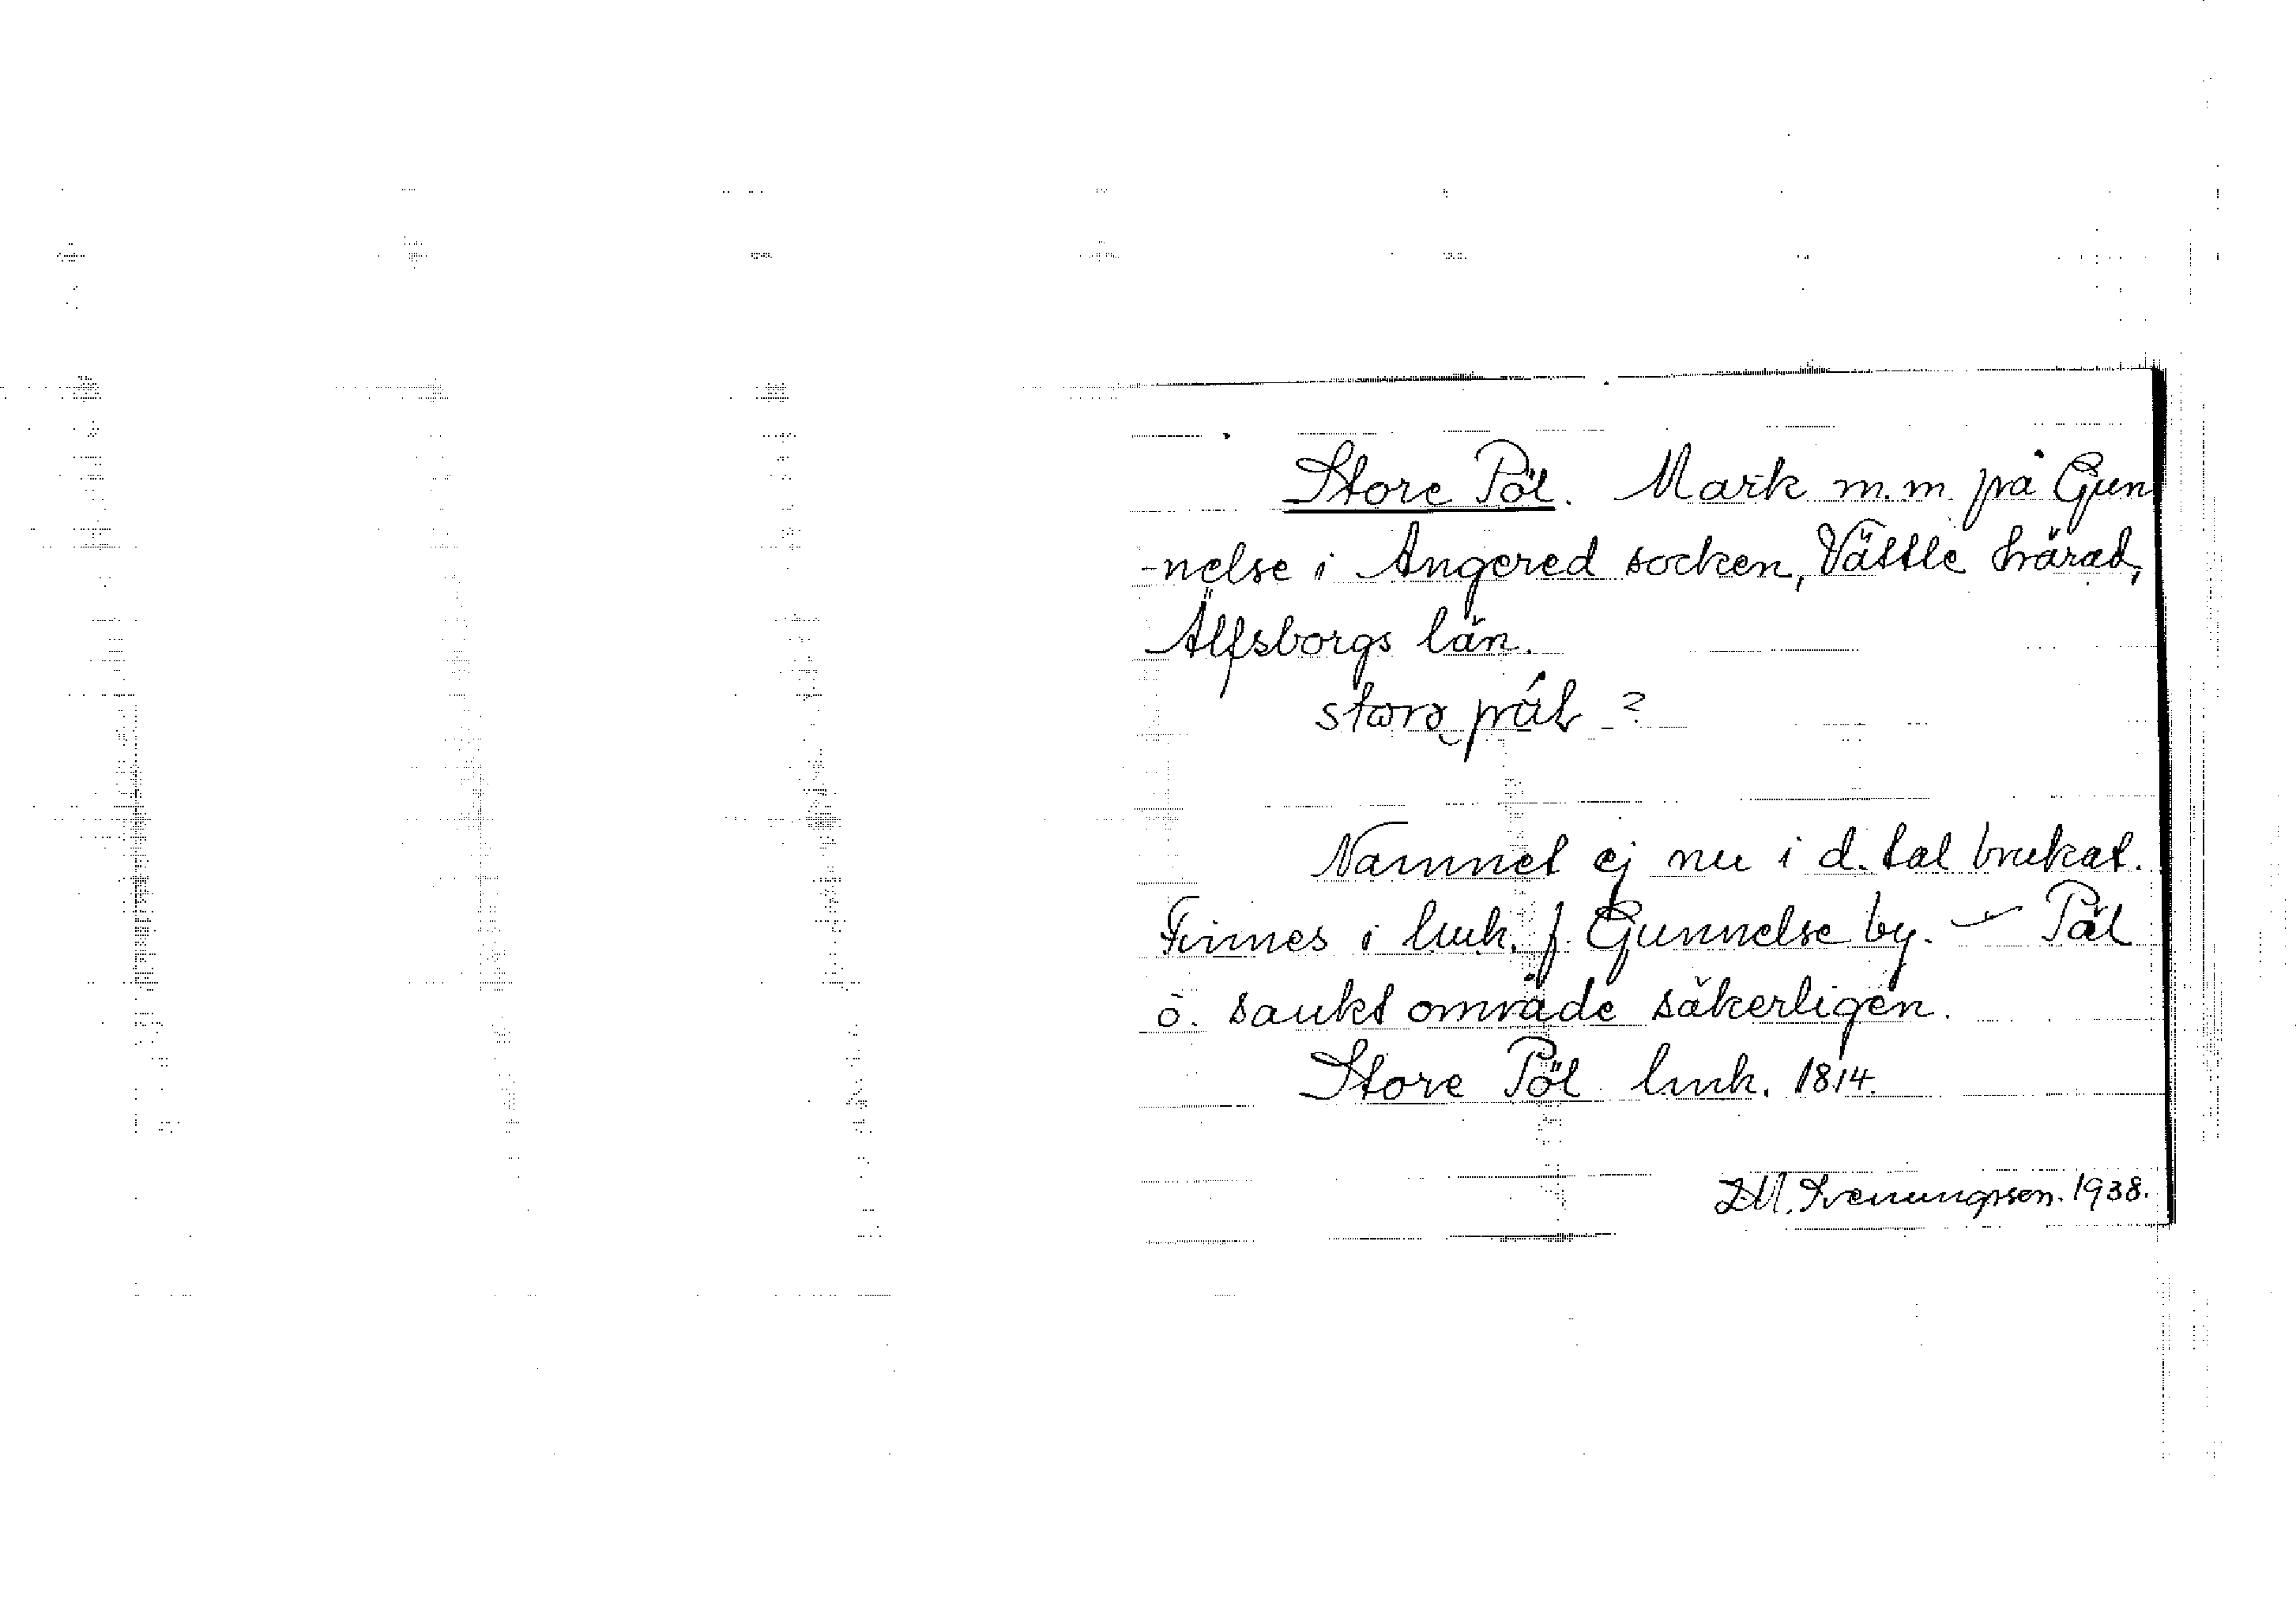 Store Pöl. Mark m.m. på Gun
-nelse i Angered socken, Vättle härad,
Älfsborgs län.
Namnet ej nu i d. tal brukat.
Finnes i lmk. f. Gunnelse by. – Pål
o. sankt område säkerligen.
Store Pöl lmk. 1814.
Svenungsson. 1938.